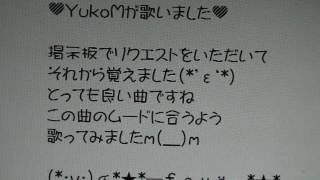 ♥YukoMが歌いました♥
掲示板でリクエストをいただいて
それから覚えました(*˙ε˙*)
とっても良い曲ですね
この曲のムードに合うよう
歌ってみましたm(__)m